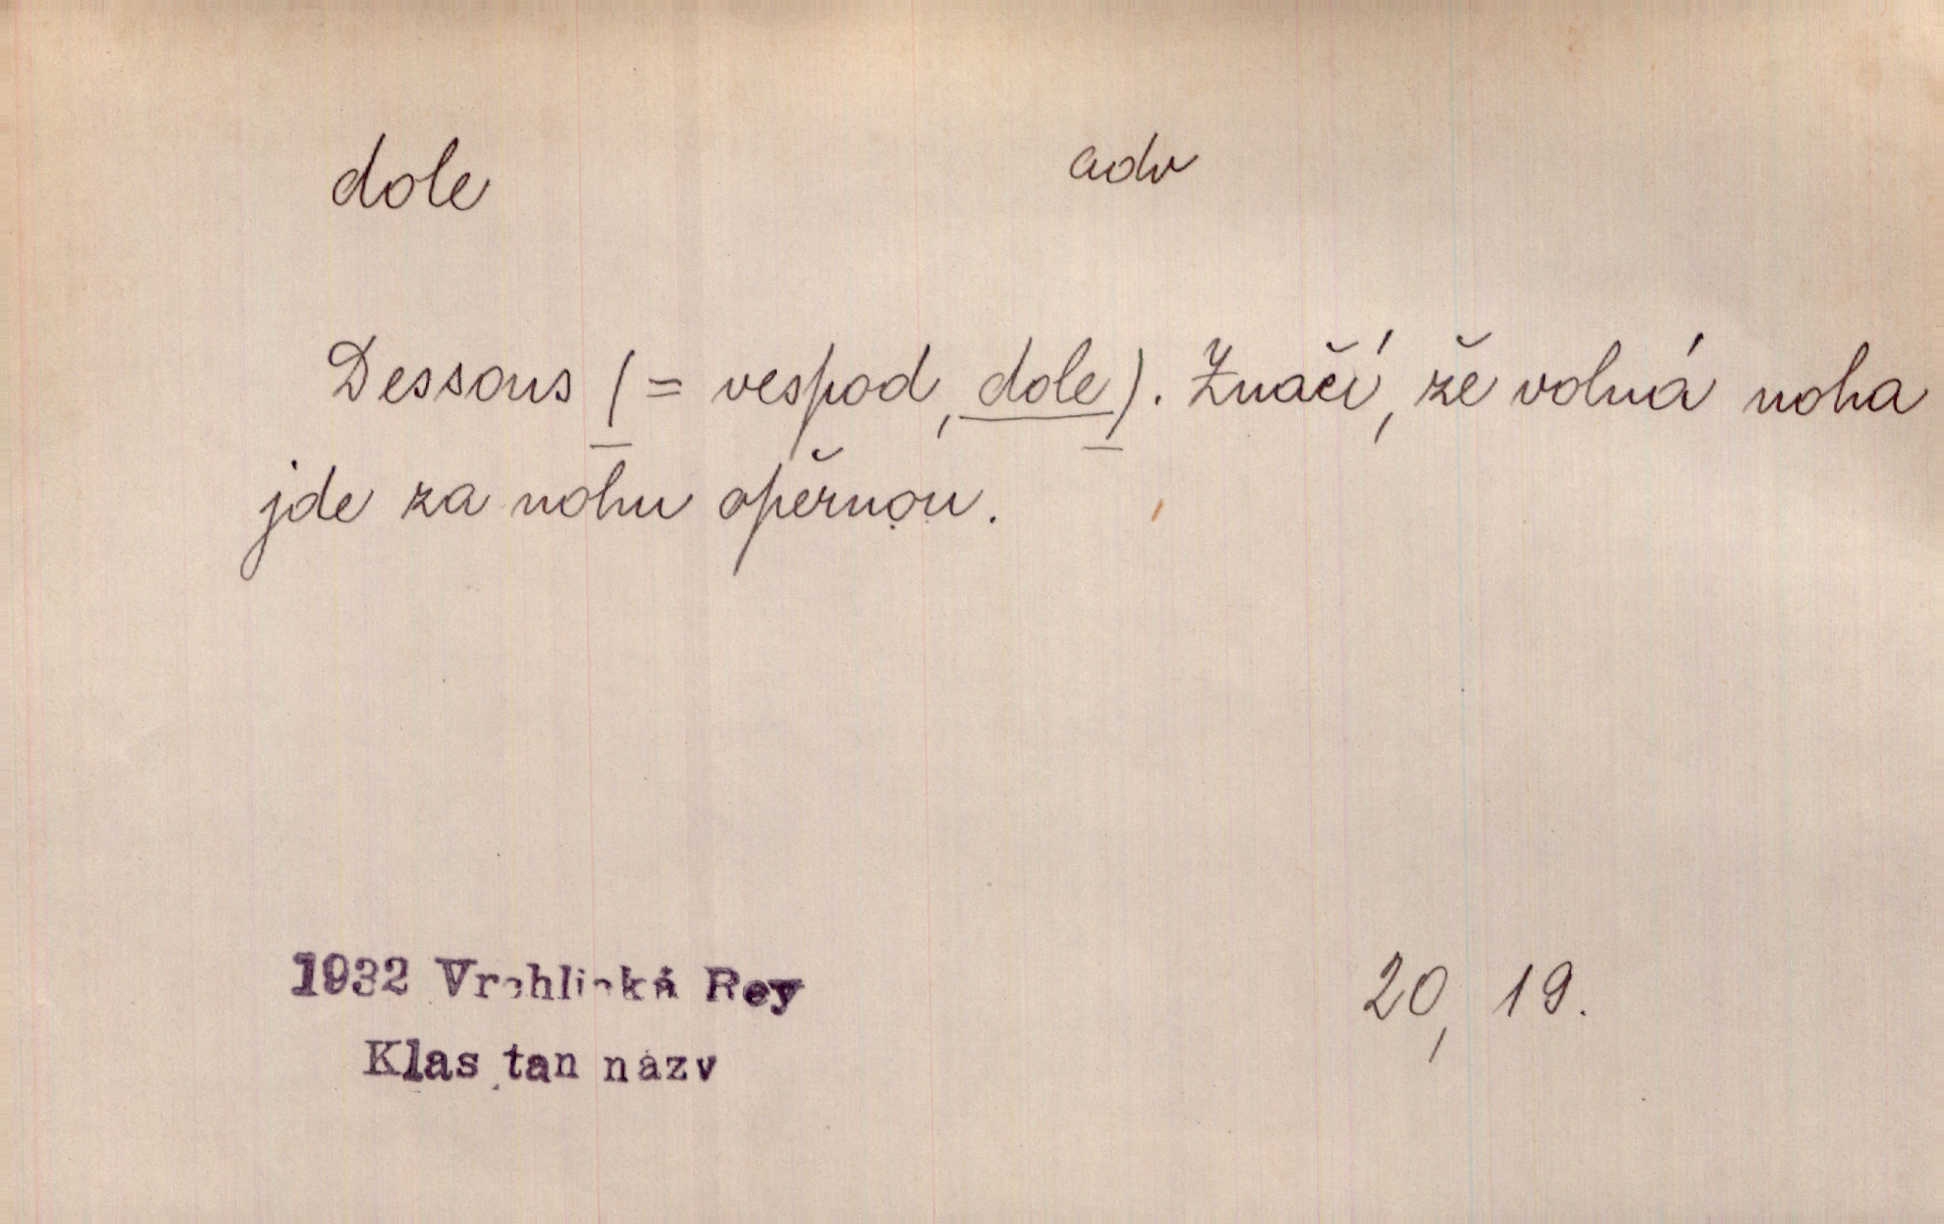 dole adv
Dessous (= vespod, dole). Značí, že volná noha
jde za nohu opěrnou.
1932 Vrchlická Rey 20, 19.
Klas tan názv